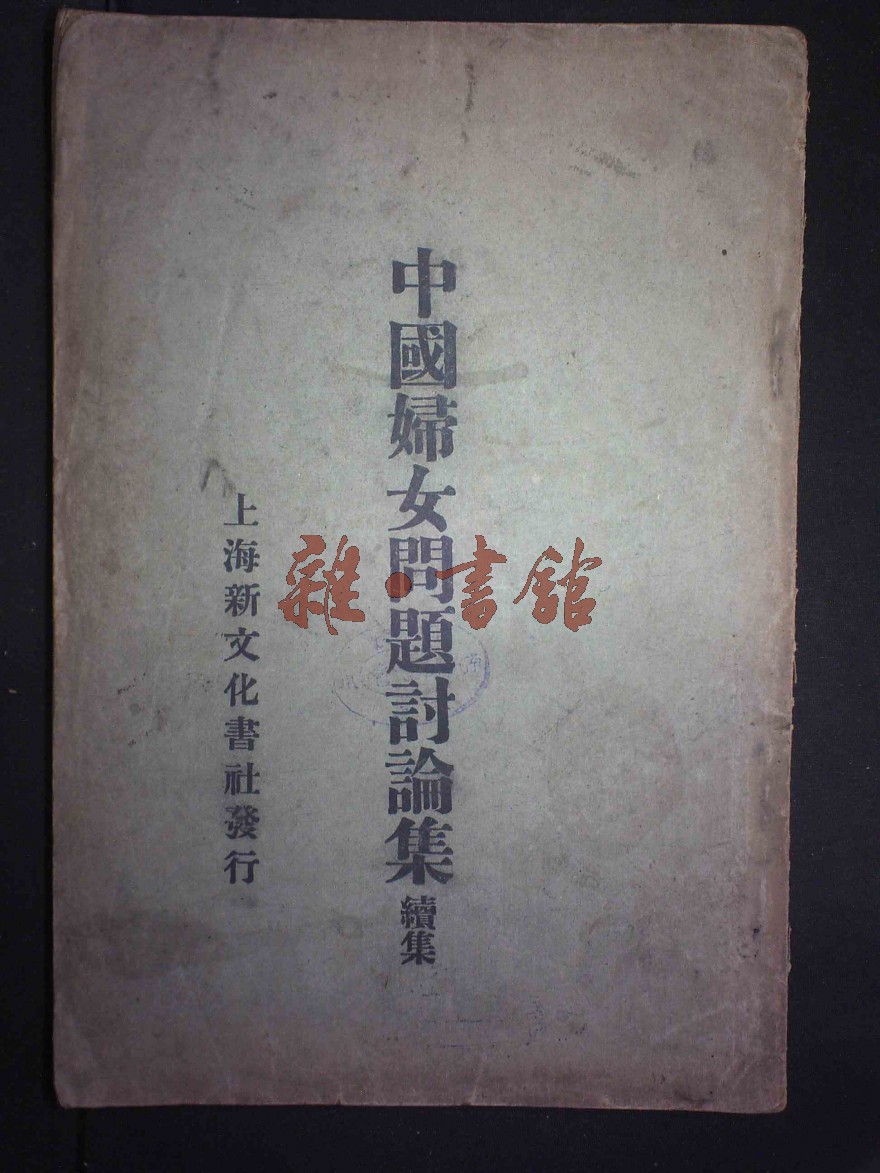 中國婦女問題討論集 續集
上海新文化書社發行
雜·書館